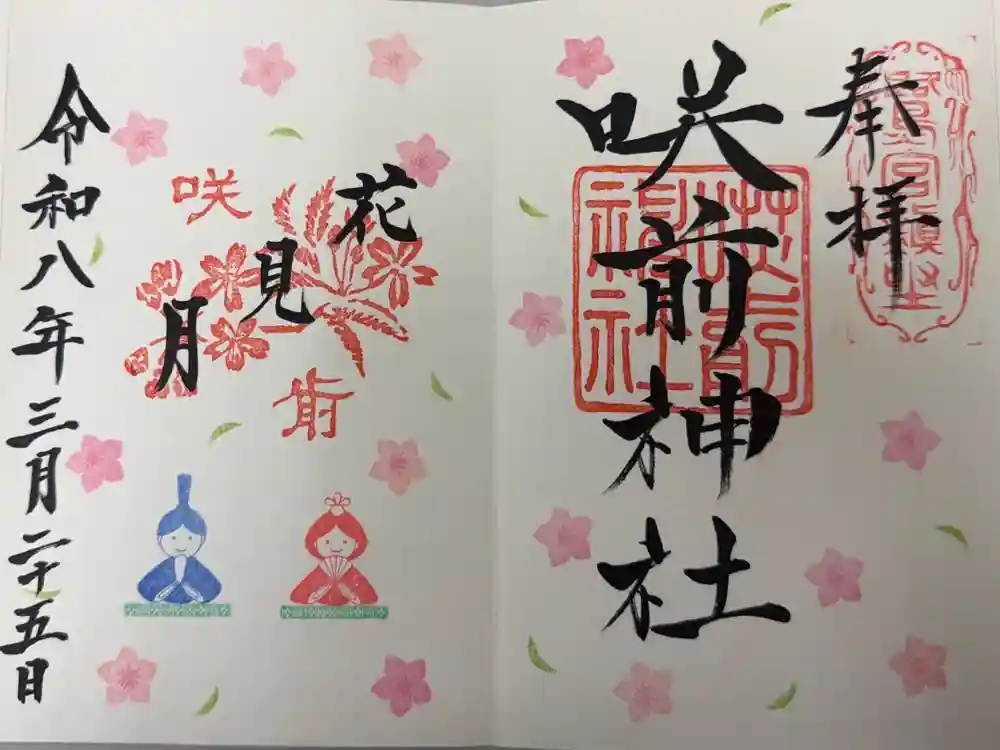 奉拝
咲前神社
花見月
咲前
令和八年三月二十五日